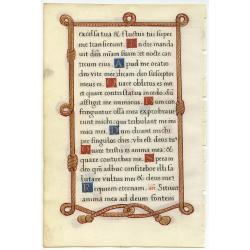 excelsa tua & fluctus tui super
me transierunt. In die manda
uit dñs miam suam et nocte can
ticum eius. Apud me oratio
deo vite mee dicam deo susceptor
meus es. Quare oblitus es mei
et quare contristatus incedo dum
affligit me inimicus. Dum con
fringuntur ossa mea exprobraue
runt michi qui tribulant me ini
mici mei. Dum dicunt michi
per singulos dies: vbi est deus tu
us: quare tristis es anima mea
et quare conturbas me. Spera
in deo qm adhuc confitebor illi
salutare vultus mei & deus meus
Requiem eternam. añ. Sitiuit
anima mea ad deum fontem